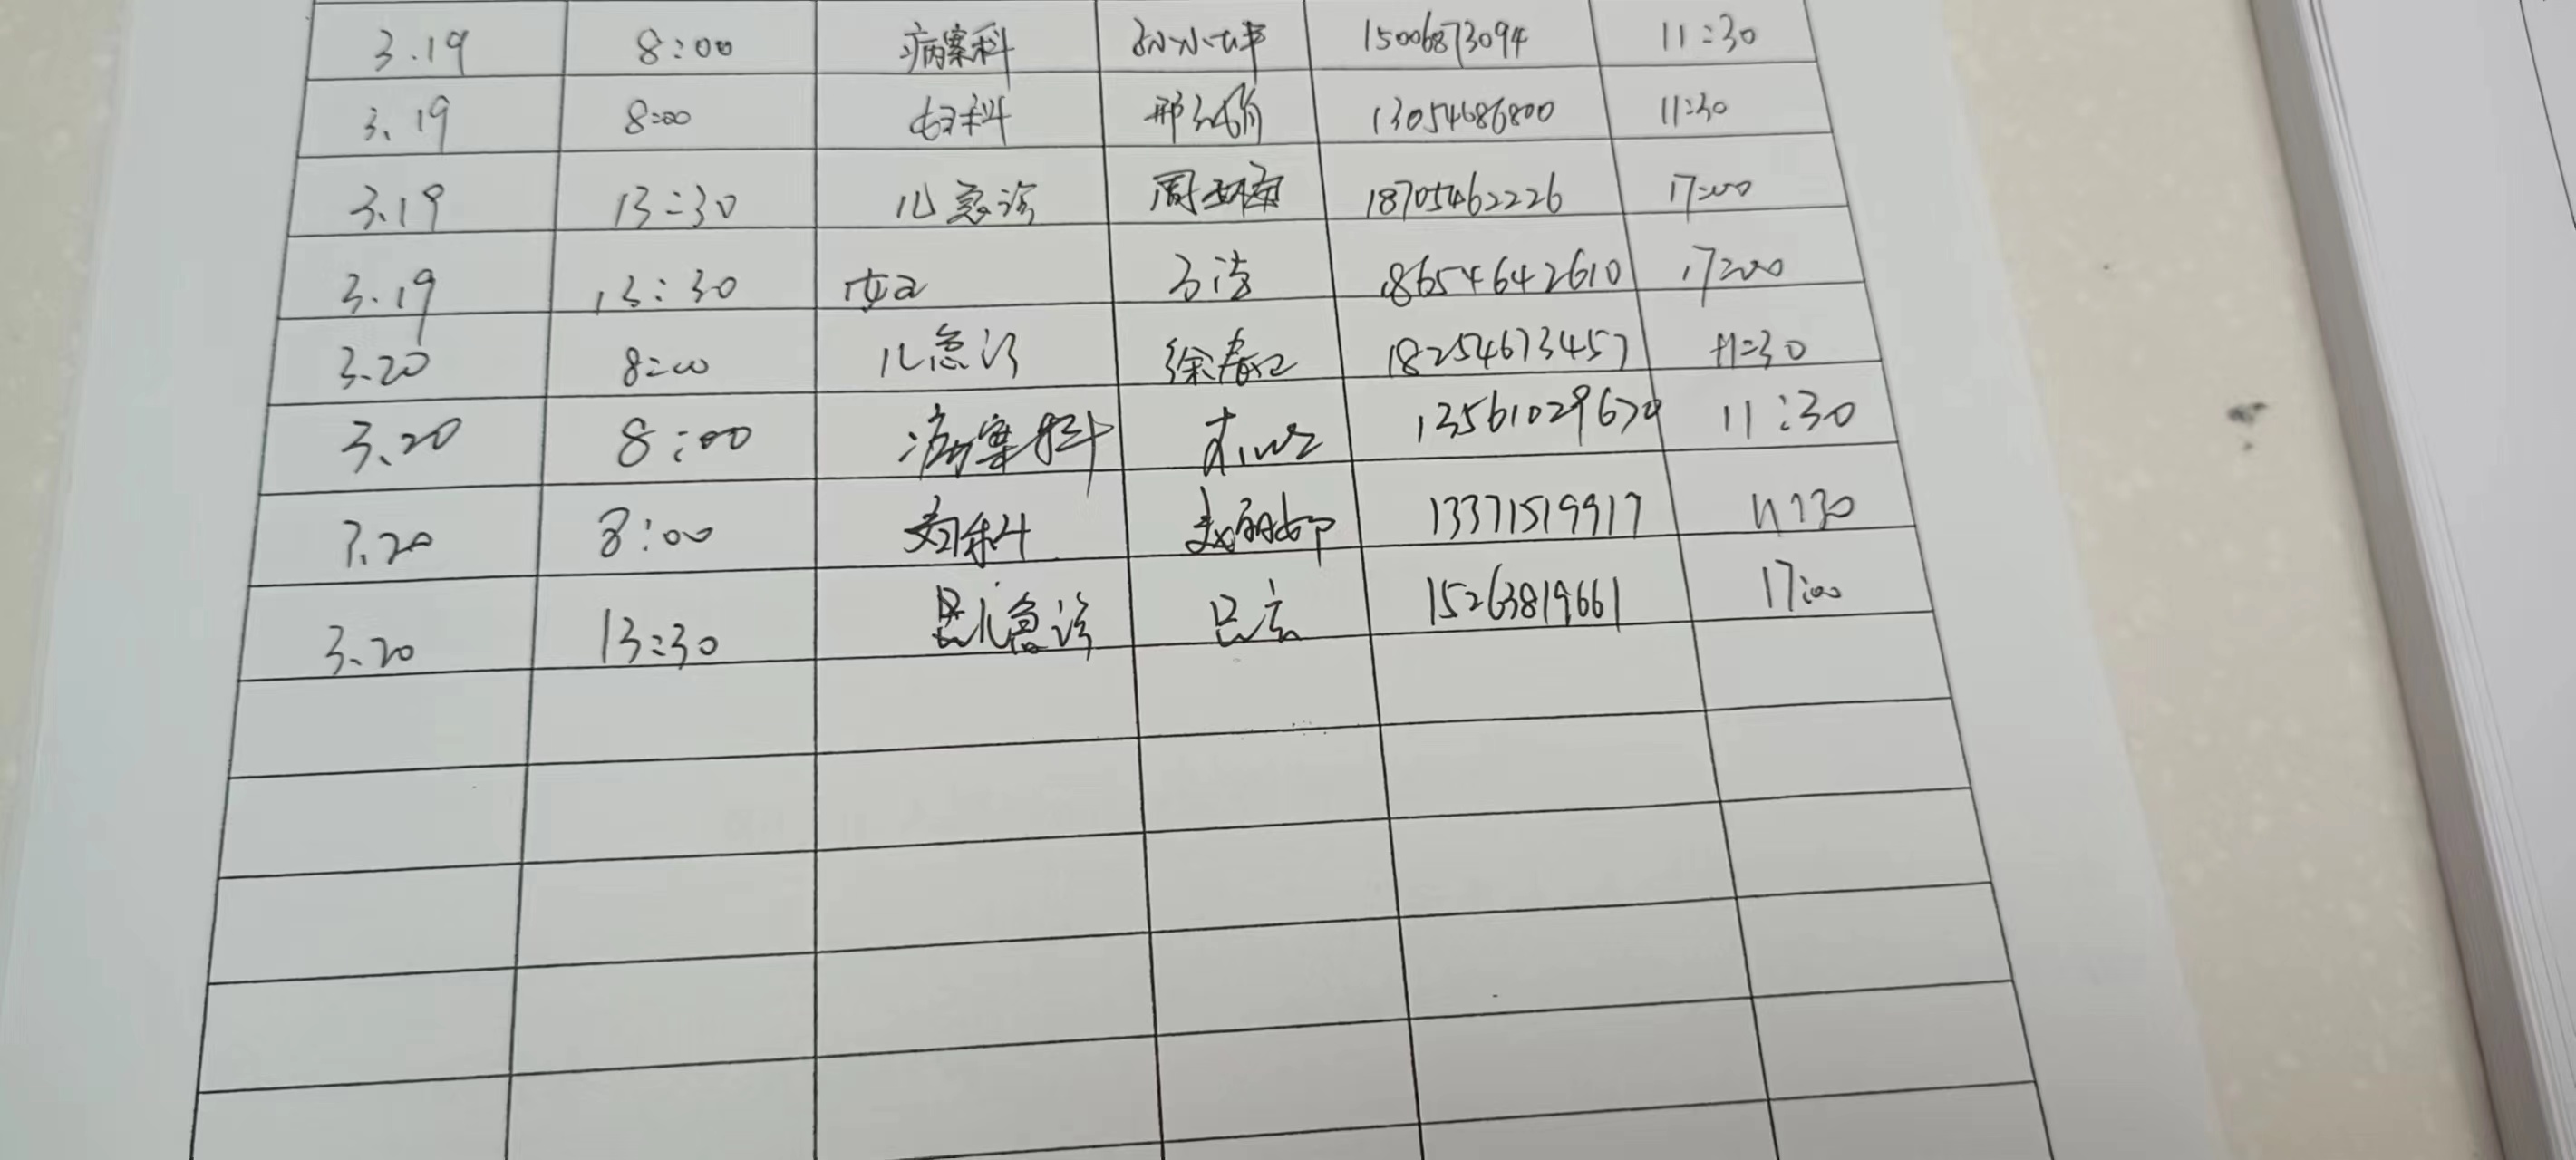 3.19 8:00 病案科 15006873094 11:30
3.19 8:00 妇科 邢 13054686800 11:30
3.19 13:30 儿急诊 周 18705462226 17:00
3.19 13:30 18654642610 17:00
3.20 8:00 儿急诊 徐春 18254673457 11:30
3.20 8:00 病案科 11:30
3.20 8:00 妇科 赵 13371519917 11:30
3.20 13:30 儿急诊 15263819661 17:00